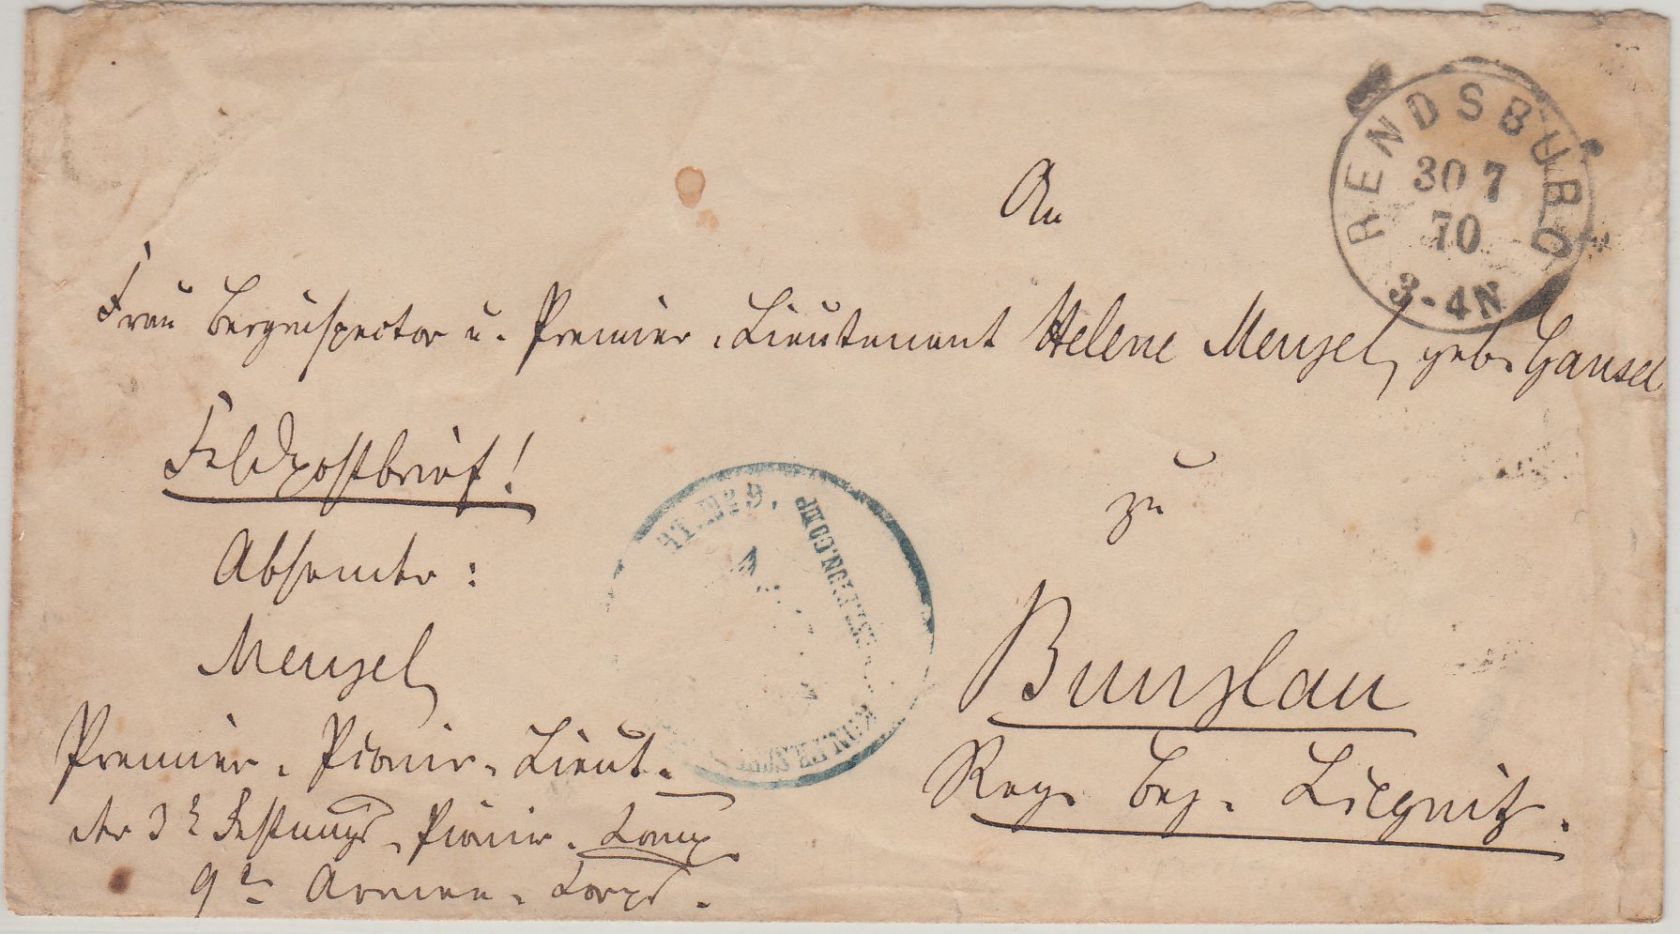 RENDSBURG
30 7
70
3-4N
An
Frau Berginspector u. Premier-Lieutenant Helene Menzel, geb. Gansel
Feldpostbrief!
zu
Absender:
Menzel,
Bunzlau
Premier-Pionir-Lieut.
Reg. Bez. Liegnitz.
der 3t Festungs-Pionir-Comp.
9ten Armee-Corps.
№ 9.
EST.PION.COMP